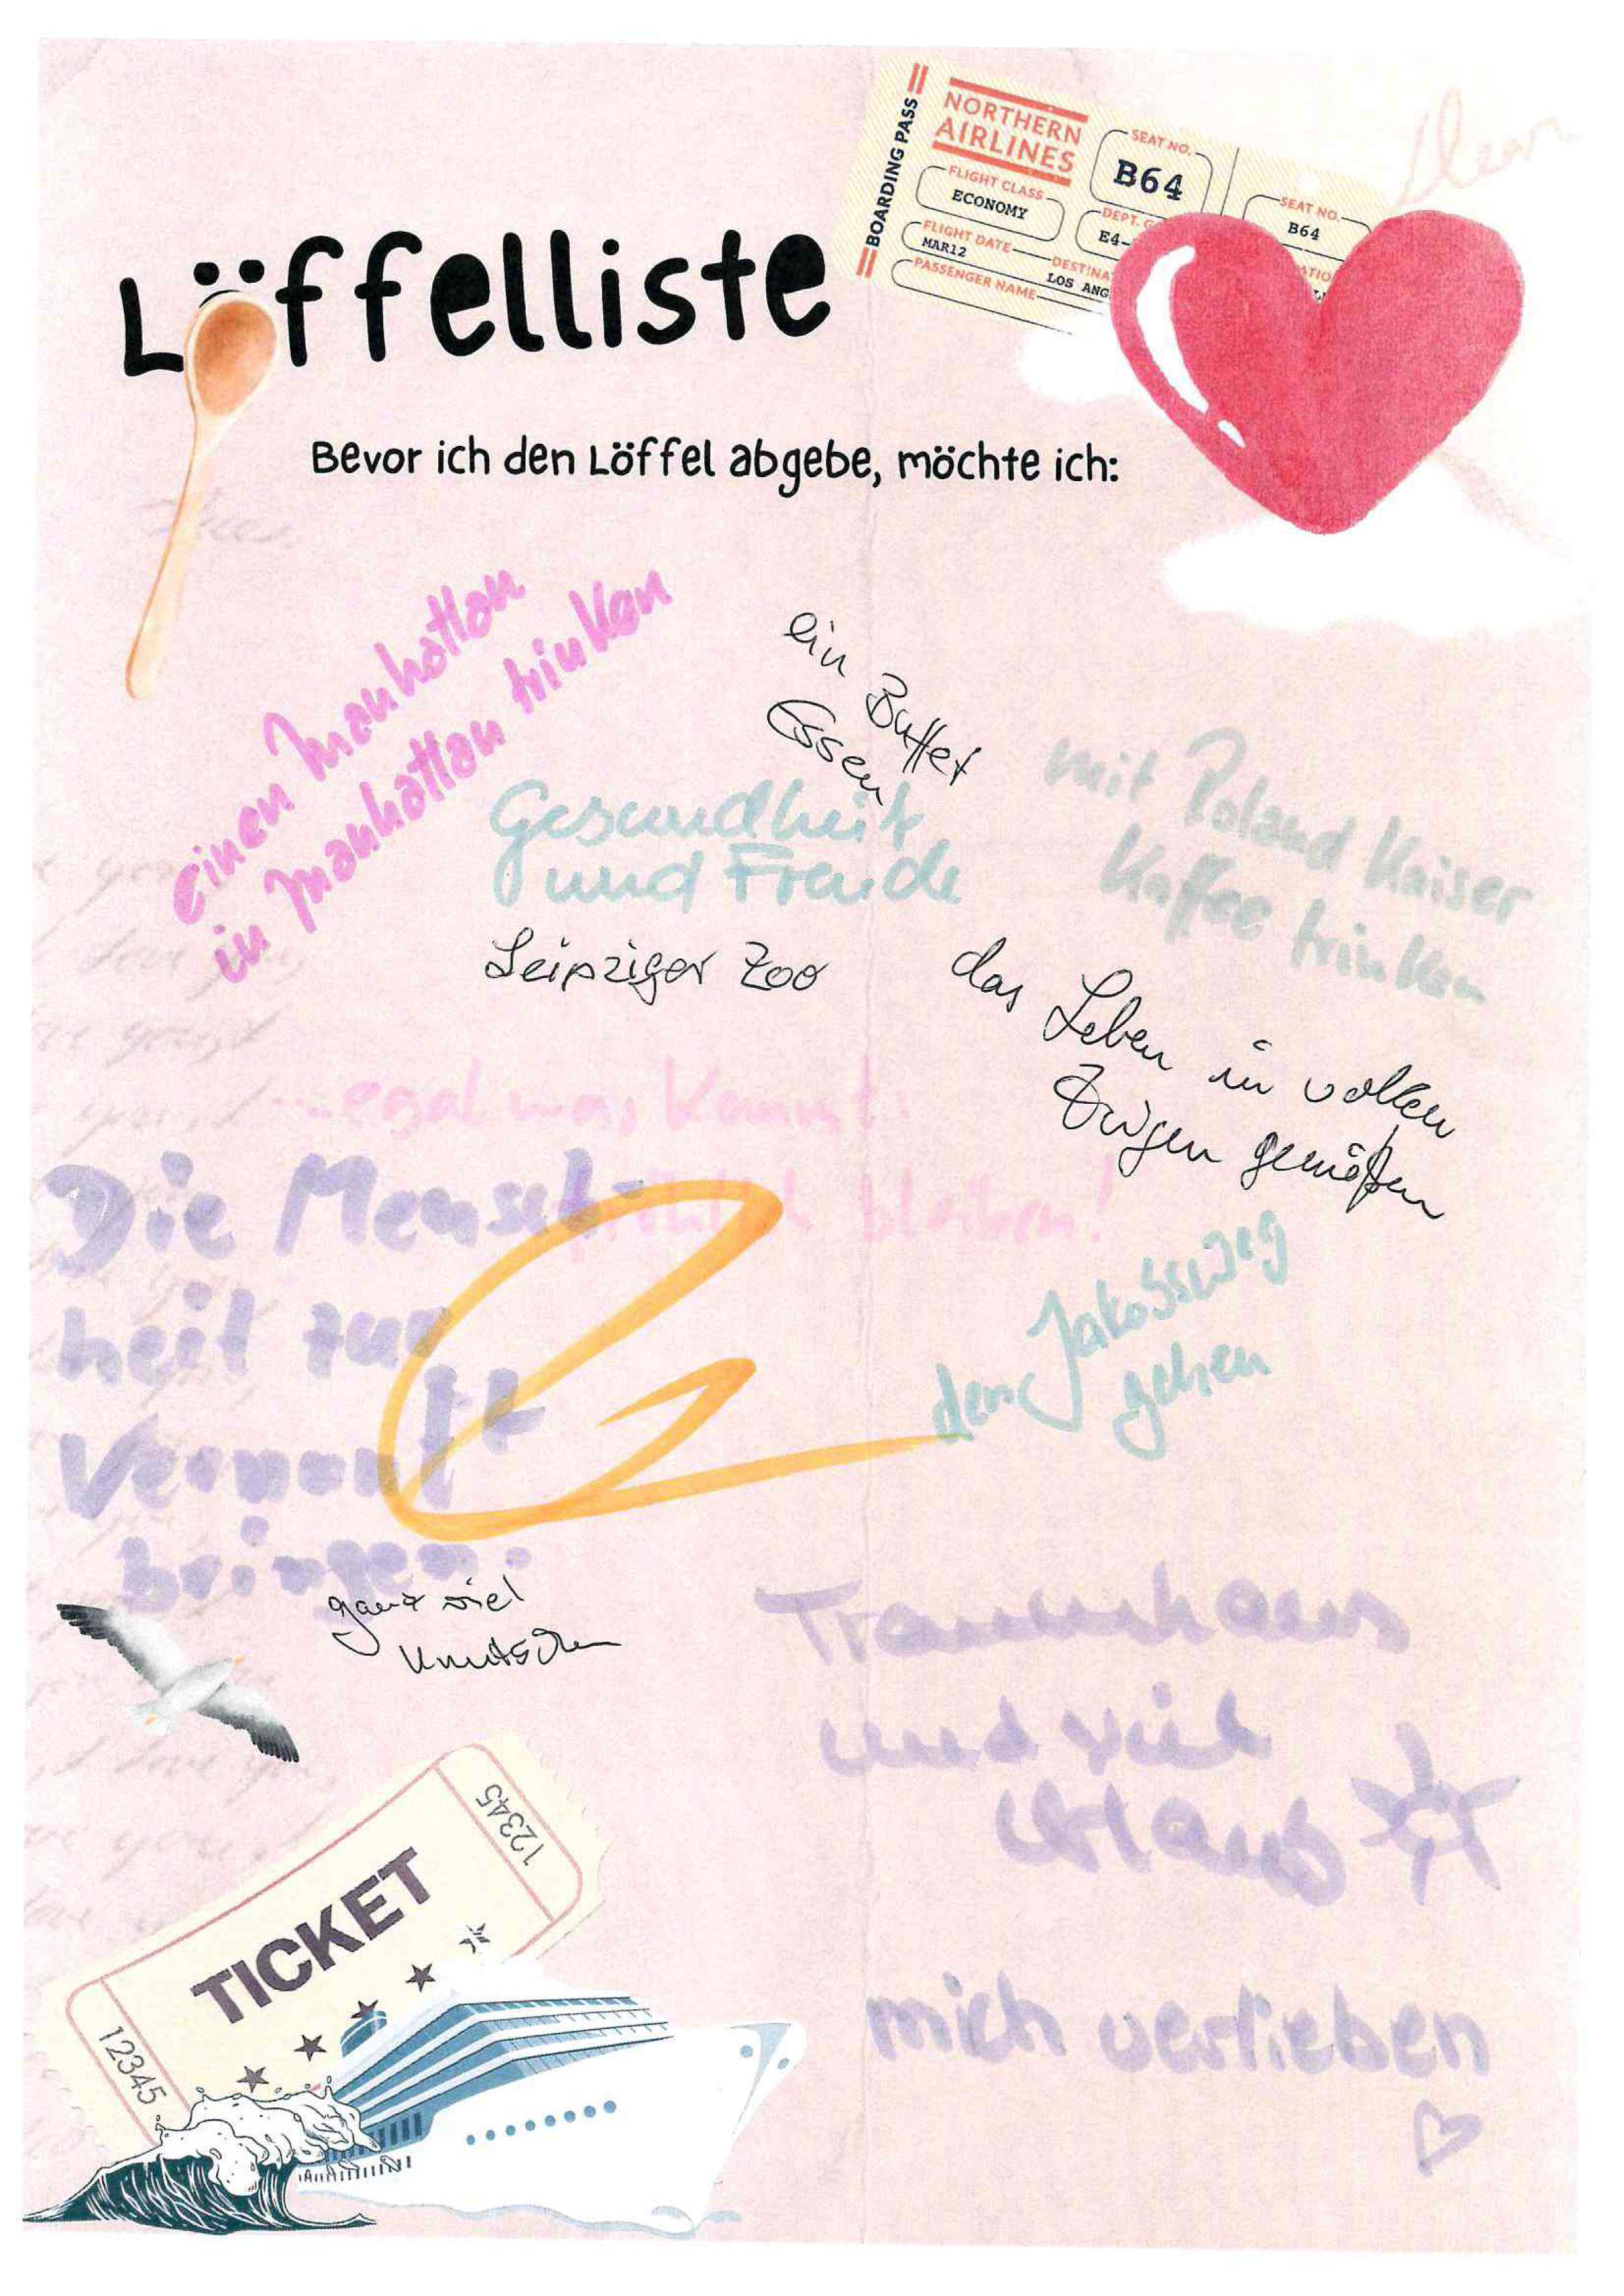 BOARDING PASS
NORTHERN
AIRLINES
SEAT NO.
B64
FLIGHT CLASS
ECONOMY
DEPT.
E4-
FLIGHT DATE
MAR12
LOS ANG
PASSENGER NAME
SEAT NO.
B64
Löffelliste
Bevor ich den Löffel abgebe, möchte ich:
einen Manhattan
in Manhattan trinken
ein Buffet
Essen
mit Roland Kaiser
Kaffee trinken
Gesundheit
und Freude
Leipziger Zoo
das Leben in vollen
Zügen genießen
...egal was kommt:
fröhlich bleiben!
Die Mensch-
heit zur
Vernunft
bringen.
den Jakobsweg
gehen
ganz viel
knutschen
Traumhaus
und viel
Urlaub
mich verlieben
TICKET
12345
12345